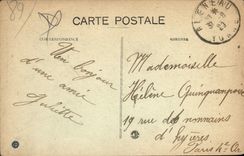 89
CARTE POSTALE
CORRESPONDANCE
ADRESSE
Un bonjour
d'une amie
Juliette
Mademoiselle
Hélène Quinquanpoix
19 rue des
d'hyères
Paris 4e Arr